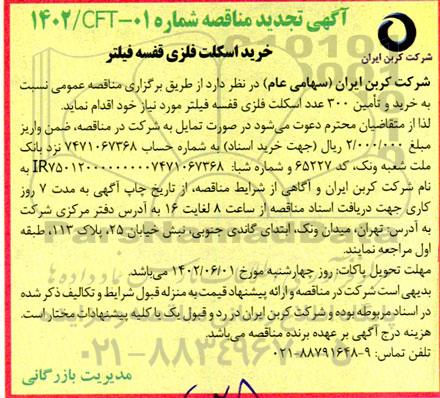 آگهی تجدید مناقصه شماره ۰۱-۱۴۰۲/CFT
شرکت کربن ایران
خرید اسکلت فلزی قفسه فیلتر
شرکت کربن ایران (سهامی عام) در نظر دارد از طریق برگزاری مناقصه عمومی نسبت
به خرید و تأمین ۳۰۰ عدد اسکلت فلزی قفسه فیلتر مورد نیاز خود اقدام نماید.
لذا از متقاضیان محترم دعوت می‌شود در صورت تمایل به شرکت در مناقصه، ضمن واریز
مبلغ ۲/۰۰۰/۰۰۰ ریال (جهت خرید اسناد) به شماره حساب ۷۴۷۱۰۶۷۳۶۸ نزد بانک
ملت شعبه ونک، کد ۶۵۲۲۷ و شماره شبا: IR۷۵۰۱۲۰۰۰۰۰۰۰۰۰۷۴۷۱۰۶۷۳۶۸ به
نام شرکت کربن ایران و آگاهی از شرایط مناقصه، از تاریخ چاپ آگهی به مدت ۷ روز
کاری جهت دریافت اسناد مناقصه از ساعت ۸ لغایت ۱۶ به آدرس دفتر مرکزی شرکت
به آدرس: تهران، میدان ونک، ابتدای گاندی جنوبی، نبش خیابان ۲۵، پلاک ۱۱۳، طبقه
اول مراجعه نمایند.
مهلت تحویل پاکات: روز چهارشنبه مورخ ۱۴۰۲/۰۶/۰۱ می‌باشد.
بدیهی است شرکت در مناقصه و ارائه پیشنهاد قیمت به منزله قبول شرایط و تکالیف ذکر شده
در اسناد مربوطه بوده و شرکت کربن ایران در رد و قبول یک یا کلیه پیشنهادات مختار است.
هزینه درج آگهی بر عهده برنده مناقصه می‌باشد.
تلفن تماس: ۹-۸۸۷۹۱۶۴۸-۰۲۱
۰۲۱-۸۸۳۴۹۶۷۰
مدیریت بازرگانی